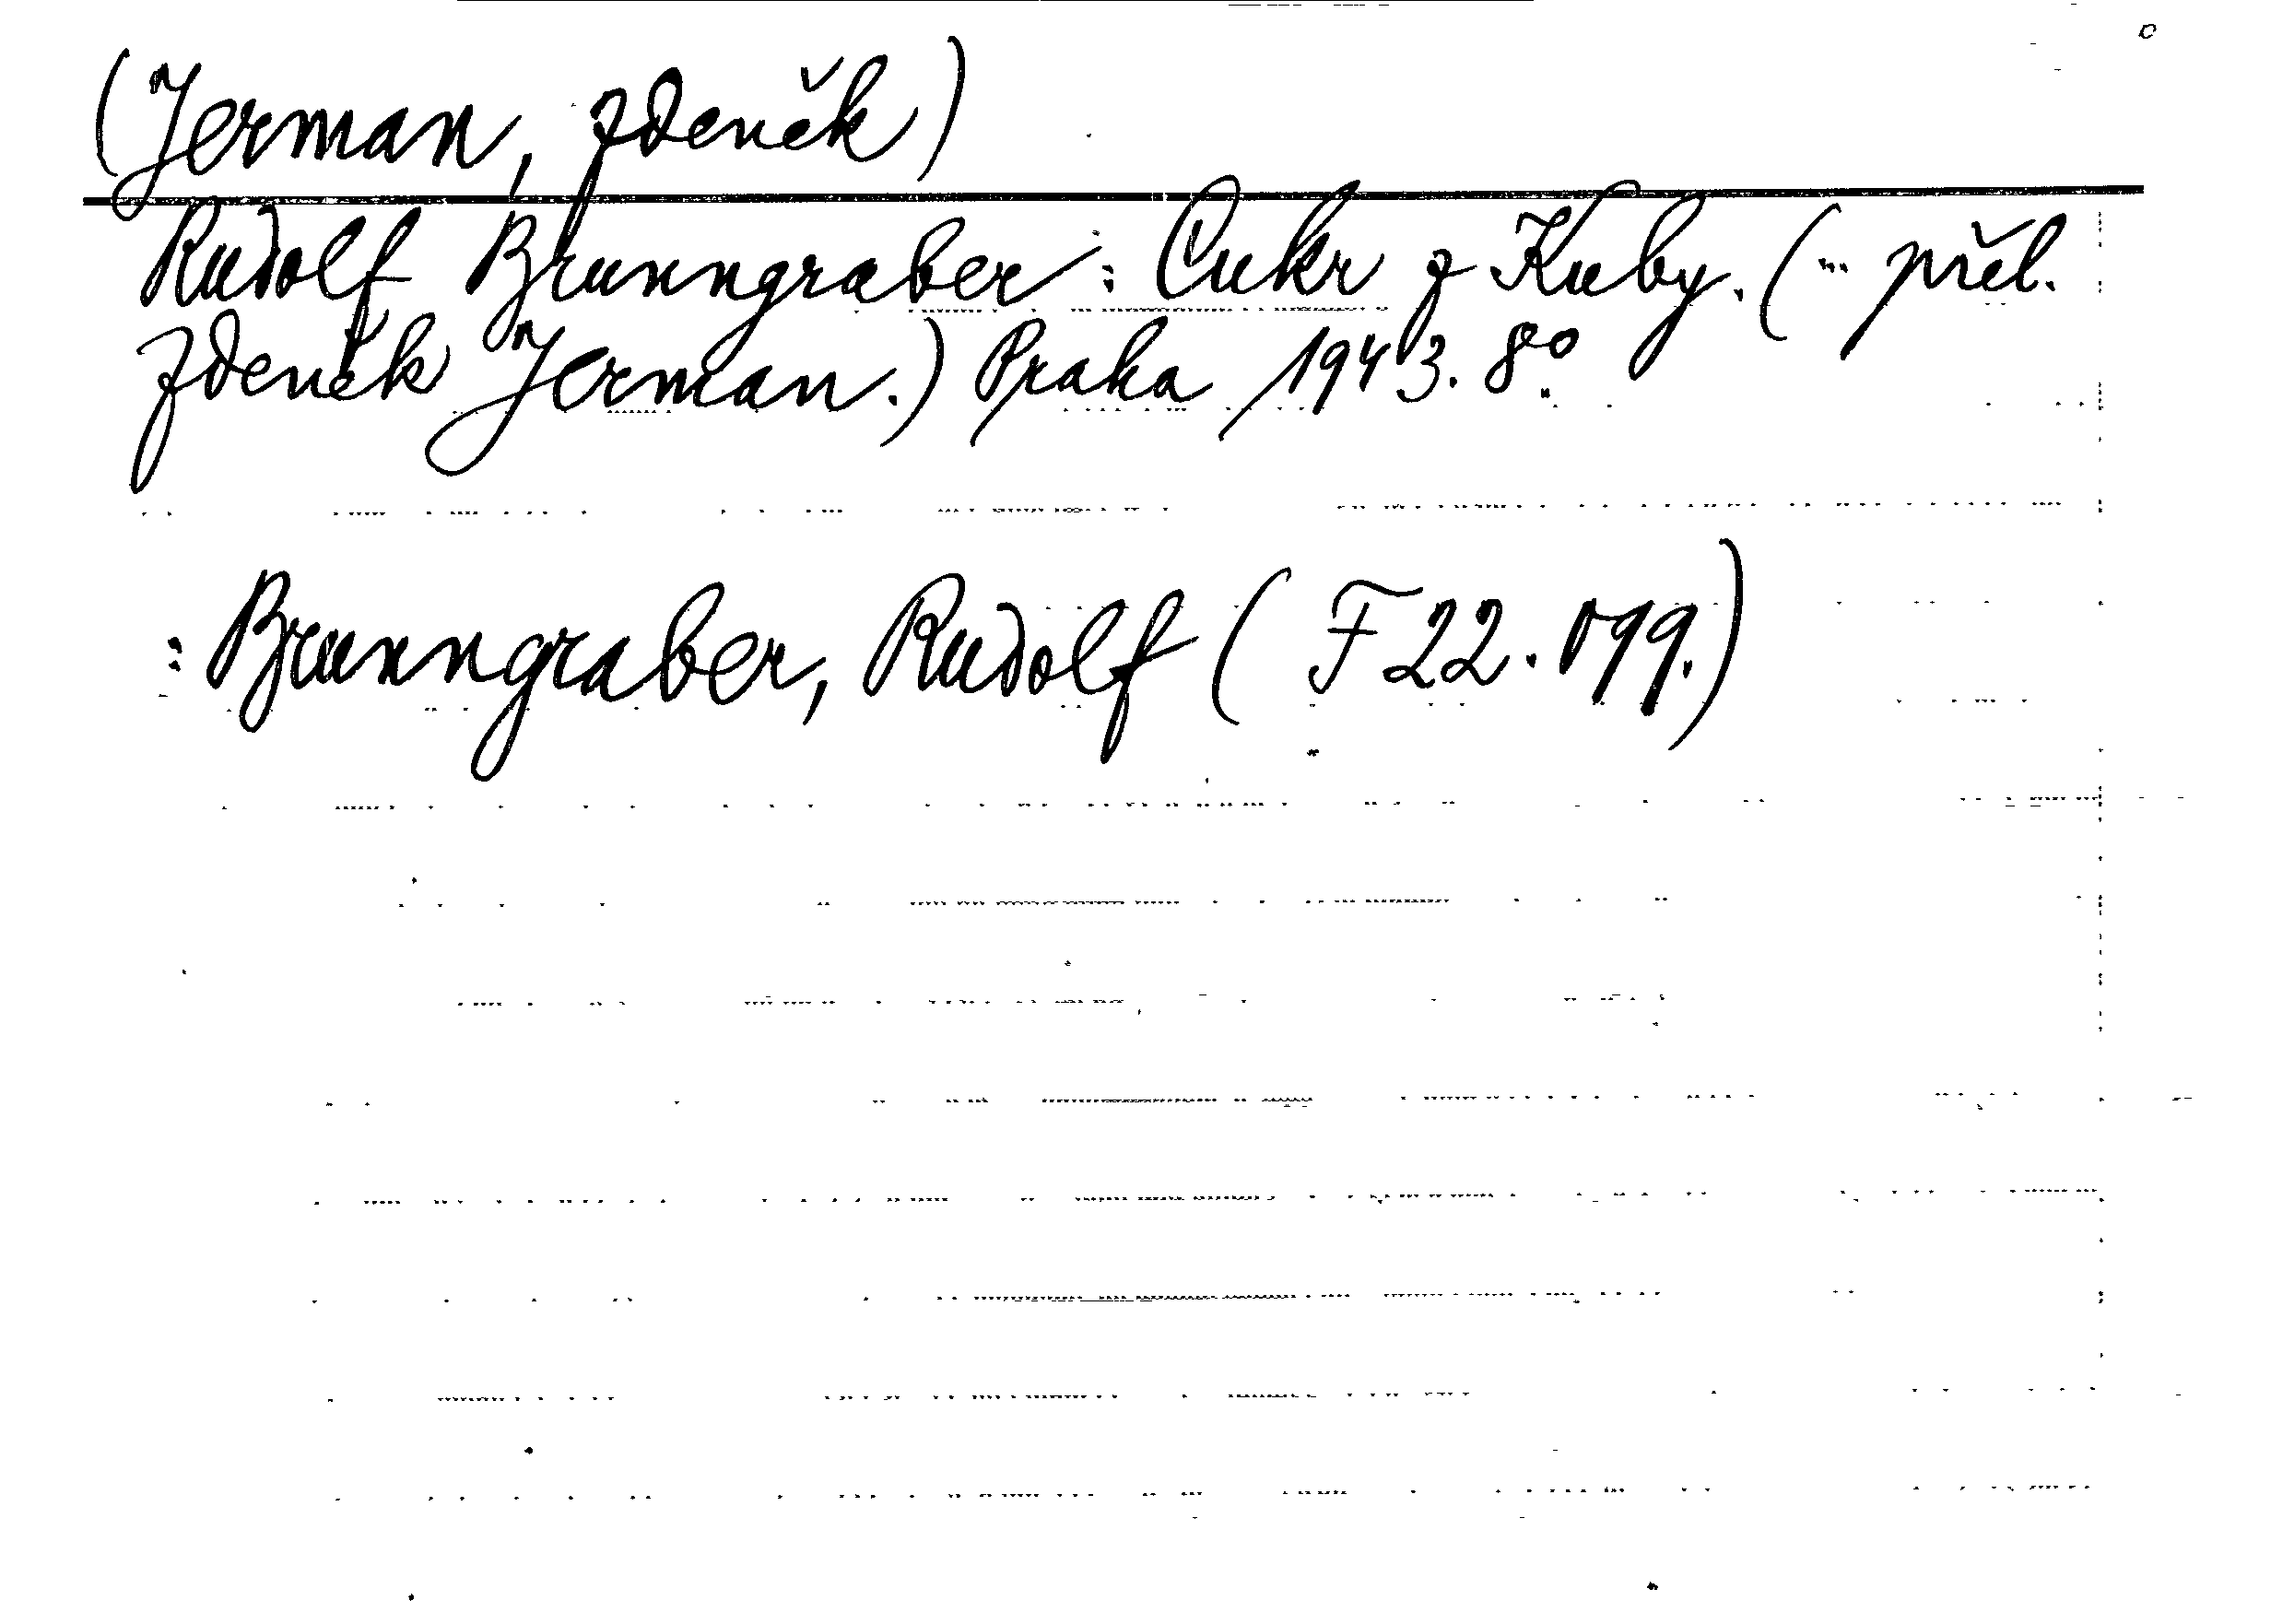 (Jerman, Zdeněk)
Rudolf Brunngraber: Cukr z Kuby. (... přel.
Zdeněk Jerman.) Praha 1943. 8°.
: Brunngraber, Rudolf (F 22.099.)